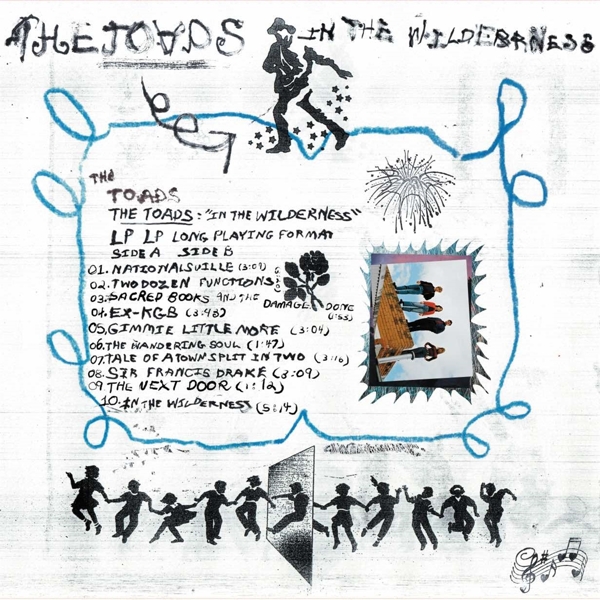 THE TOADS IN THE WILDERNESS
THE
TOADS
THE TOADS: "IN THE WILDERNESS"
LP LP LONG PLAYING FORMAT
SIDE A SIDE B
01. NATIONALSVILLE (3:09)
02. TWO DOZEN FUNCTIONS
03. SACRED BOOKS AND THE DAMAGE DONE (1:53)
04. EX-KGB (3:48)
05. GIMMIE LITTLE MORE (3:04)
06. THE WANDERING SOUL (1:47)
07. TALE OF A TOWN SPLIT IN TWO (3:16)
08. SIR FRANCIS DRAKE (3:09)
09 THE NEXT DOOR (1:12)
10. IN THE WILDERNESS (5:14)